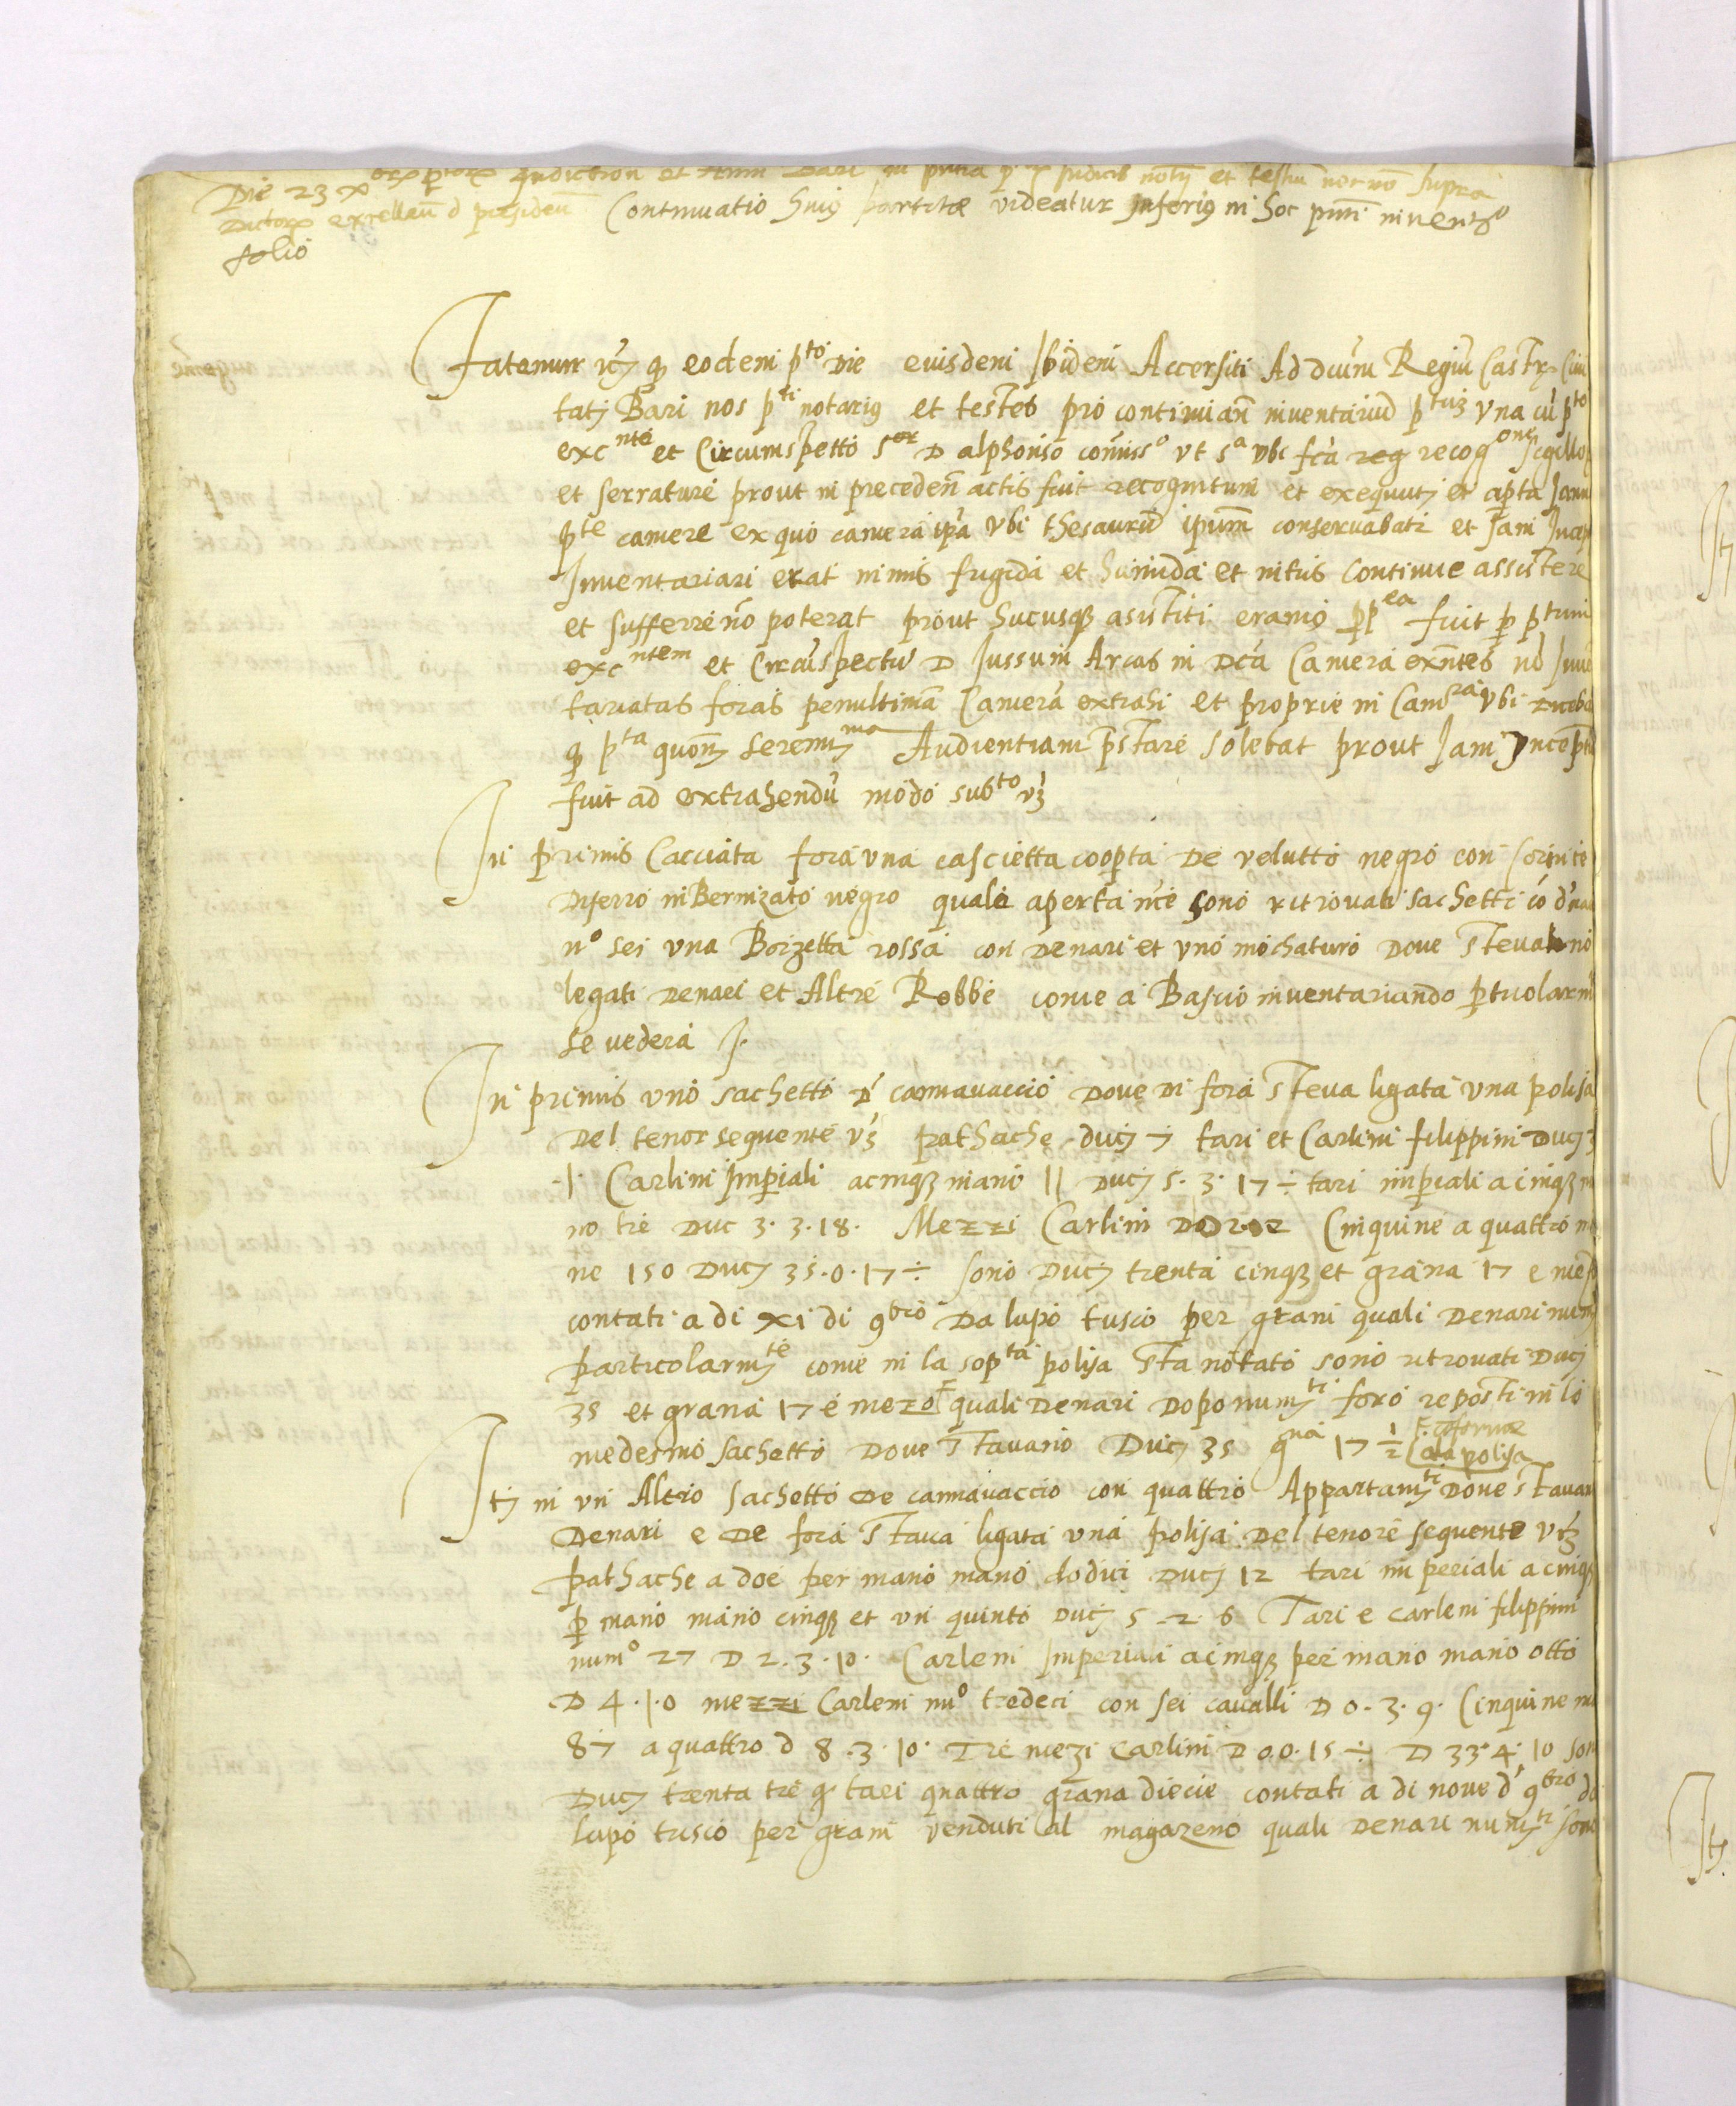 Die 23 indiction et Anni Bari in pntia Judicis notij et testiu nec nō supra
Dictorꝫ excellen d presiden Continuatio huiꝰ partitæ videatur Inferiꝰ in hoc pnti inventꝰ
folio
Fatemur qꝫ eodem pto Die eiusdem Ibidem Accersiti Ad Dcum Regiu Castrꝫ Civi
tatj Bari nos pti notariꝰ et testes pro continuan inventariu una cū pto
excnte et Circumspetto Sor D alphonso comisso ut sa ubi fca reg recogone sigillorꝫ
et serrature prout in preceden actis fuit recognitum et exequutj et apta Janu
pte camere ex quo camera ipa ubi thesauru ipum conservabati et Jam Incep
Inventariari erat nimis frigida et humida et intus Continue assistere
et sufferre nō poterat prout hucusqꝫ asistiti eramꝰ ppea fuit p ptum
excntem et Circuspectu D Jussum Arcas in Dca Camera exntes nō Inve
tariatas foras penultima Camera extrahi et proprie in Camra ubi
qꝫ pta quon serenma Audientiam pstare solebat prout Jam Yncept
fuit ad extrahendū modo subto vꝫ
In primis Cacciata fora una cascietta coopta De velutto negro con
Diferro inBernizato negro quale aperta nce sono ritrovati sachetti cō dna
no sei una Borzetta rossa con Denari et uno mochaturo Dove stevano
legati Denari et Altre Robbe come a Bascio inventariando pticolarm
se vedera /.
In primis uno sachetto d cannavaccio Dove di fora steva ligata una polisa
Del tenor sequente vꝫ pathache ducj 7 tari et Carlini filippini Ducj 3
.1. Carlini Imperiali a cinqꝫ mano 11 Ducj 5. 3. 17 ÷ tari imperiali a cinqꝫ m
no tre Duc 3. 3. 18. Mezzi Carlini Cinquine a quattro m
ne 150 Ducj 35.0.17 ÷ sono Ducj trenta cinqꝫ et grana 17 e mes
contati a di xi di 9bro Da lupo tuscio per grani quali Denari num
particolarmte come in la sopta polisa sta notato sono ritrovati Ducj
35 et grana 17 e mezo F quali Denari Dopo numti foro reposti in lo
medesmo sachetto Dove stavano Ducj 35 gna 17 1/2 F. coforme
ala polisa
Itj in un Altro sachetto De cannavaccio con quattro Appartamti Dove stavan
Denari e De fora stava ligata una polisa Del tenore sequente vꝫ
pathache a doe per mano mano dodici Ducj 12 tari imperiali a cinqꝫ
p mano mano cinqꝫ et un quinto Ducj 5 -2- 6 Tari e carleni filippini
numo 27 D 2. 3. 10. Carleni Imperiali a cinqꝫ per mano mano otto
D 4. 1. 0 mezzi Carleni nuo tredeci con sei cavalli D 0. 3. 9. Cinquine nu
87 a quattro d 8. 3. 10. Tre mezi Carlini D 0.0.15 ÷ D 33. 4. 10 son
Ducj trenta tre tari quattro grana diecie contati a di nove d 9bro da
lupo tuscio per grani venduti al magazeno quali Denari numti sono